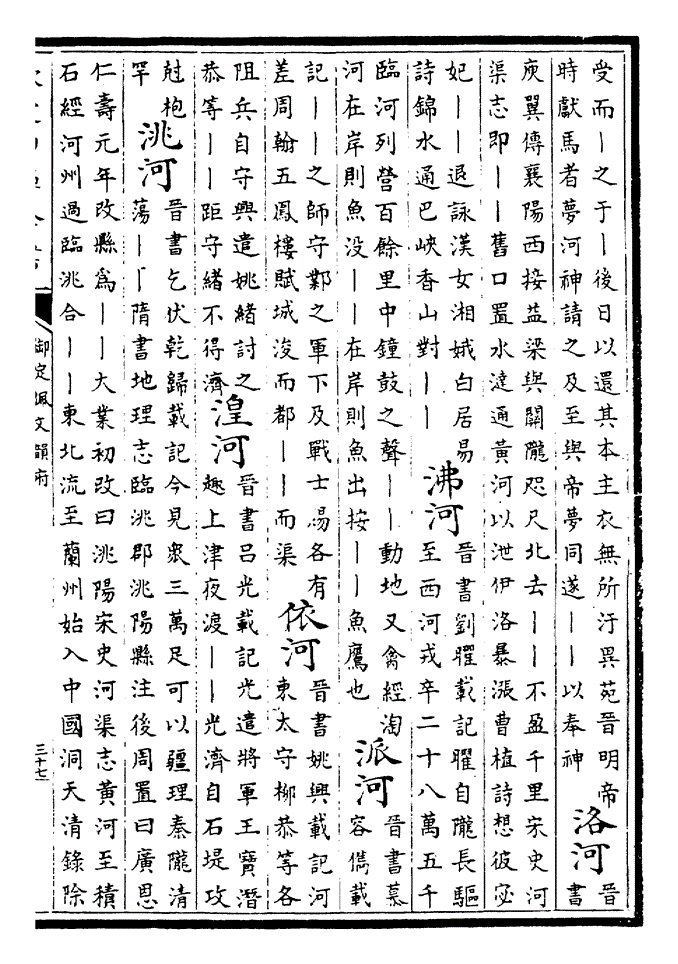 受而丨之于丨後日以還其本主衣無所汙異苑晉明帝
時獻馬者夢河神請之及至與帝夢同遂丨丨以奉神
洛河
晉
書
庾翼傳襄陽西接益梁與關隴咫尺北去丨丨不盈千里宋史河
渠志即丨丨舊口置水達通黃河以泄伊洛暴漲曹植詩想彼宓
妃丨丨退詠漢女湘娥白居易
詩錦水通巴峽香山對丨丨
沸河
晉書劉曜載記曜自隴長驅
至西河戎卒二十八萬五千
臨河列營百餘里中鐘鼓之聲丨丨動地又禽經淘
河在岸則魚没丨丨在岸則魚出按丨丨魚鷹也
派河
晉書慕
容儁載
記丨丨之師守鄴之軍下及戰士賜各有
差周翰五鳳樓賦城浚而都丨丨而渠
依河
晉書姚興載記河
東太守柳恭等各
阻兵自守興遣姚緒討之
恭等丨丨距守緒不得濟
湟河
晉書呂光載記光遣將軍王寶潛
趣上津夜渡丨丨光濟自石堤攻
尅枹
罕
洮河
晉書乞伏乾歸載記今見衆三萬足可以疆理秦隴清
蕩丨丨隋書地理志臨洮郡洮陽縣注後周置曰廣恩
仁壽元年改縣爲丨丨大業初改曰洮陽宋史河渠志黃河至積
石經河州過臨洮合丨丨東北流至蘭州始入中國洞天清錄除
御定佩文韻府
三十七